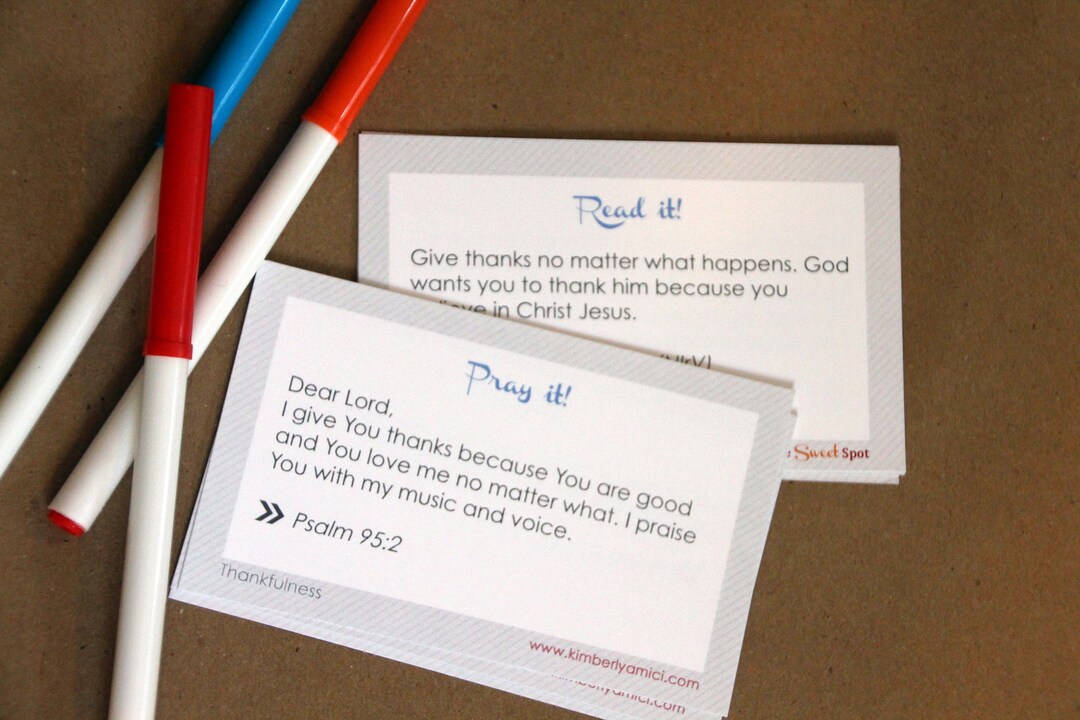 Read it!
Give thanks no matter what happens. God
wants you to thank him because you
in Christ Jesus.
Sweet Spot
Pray it!
Dear Lord,
I give You thanks because You are good
and You love me no matter what. I praise
You with my music and voice.
» Psalm 95:2
Thankfulness
www.kimberlyamici.com
kimberlyamici.com